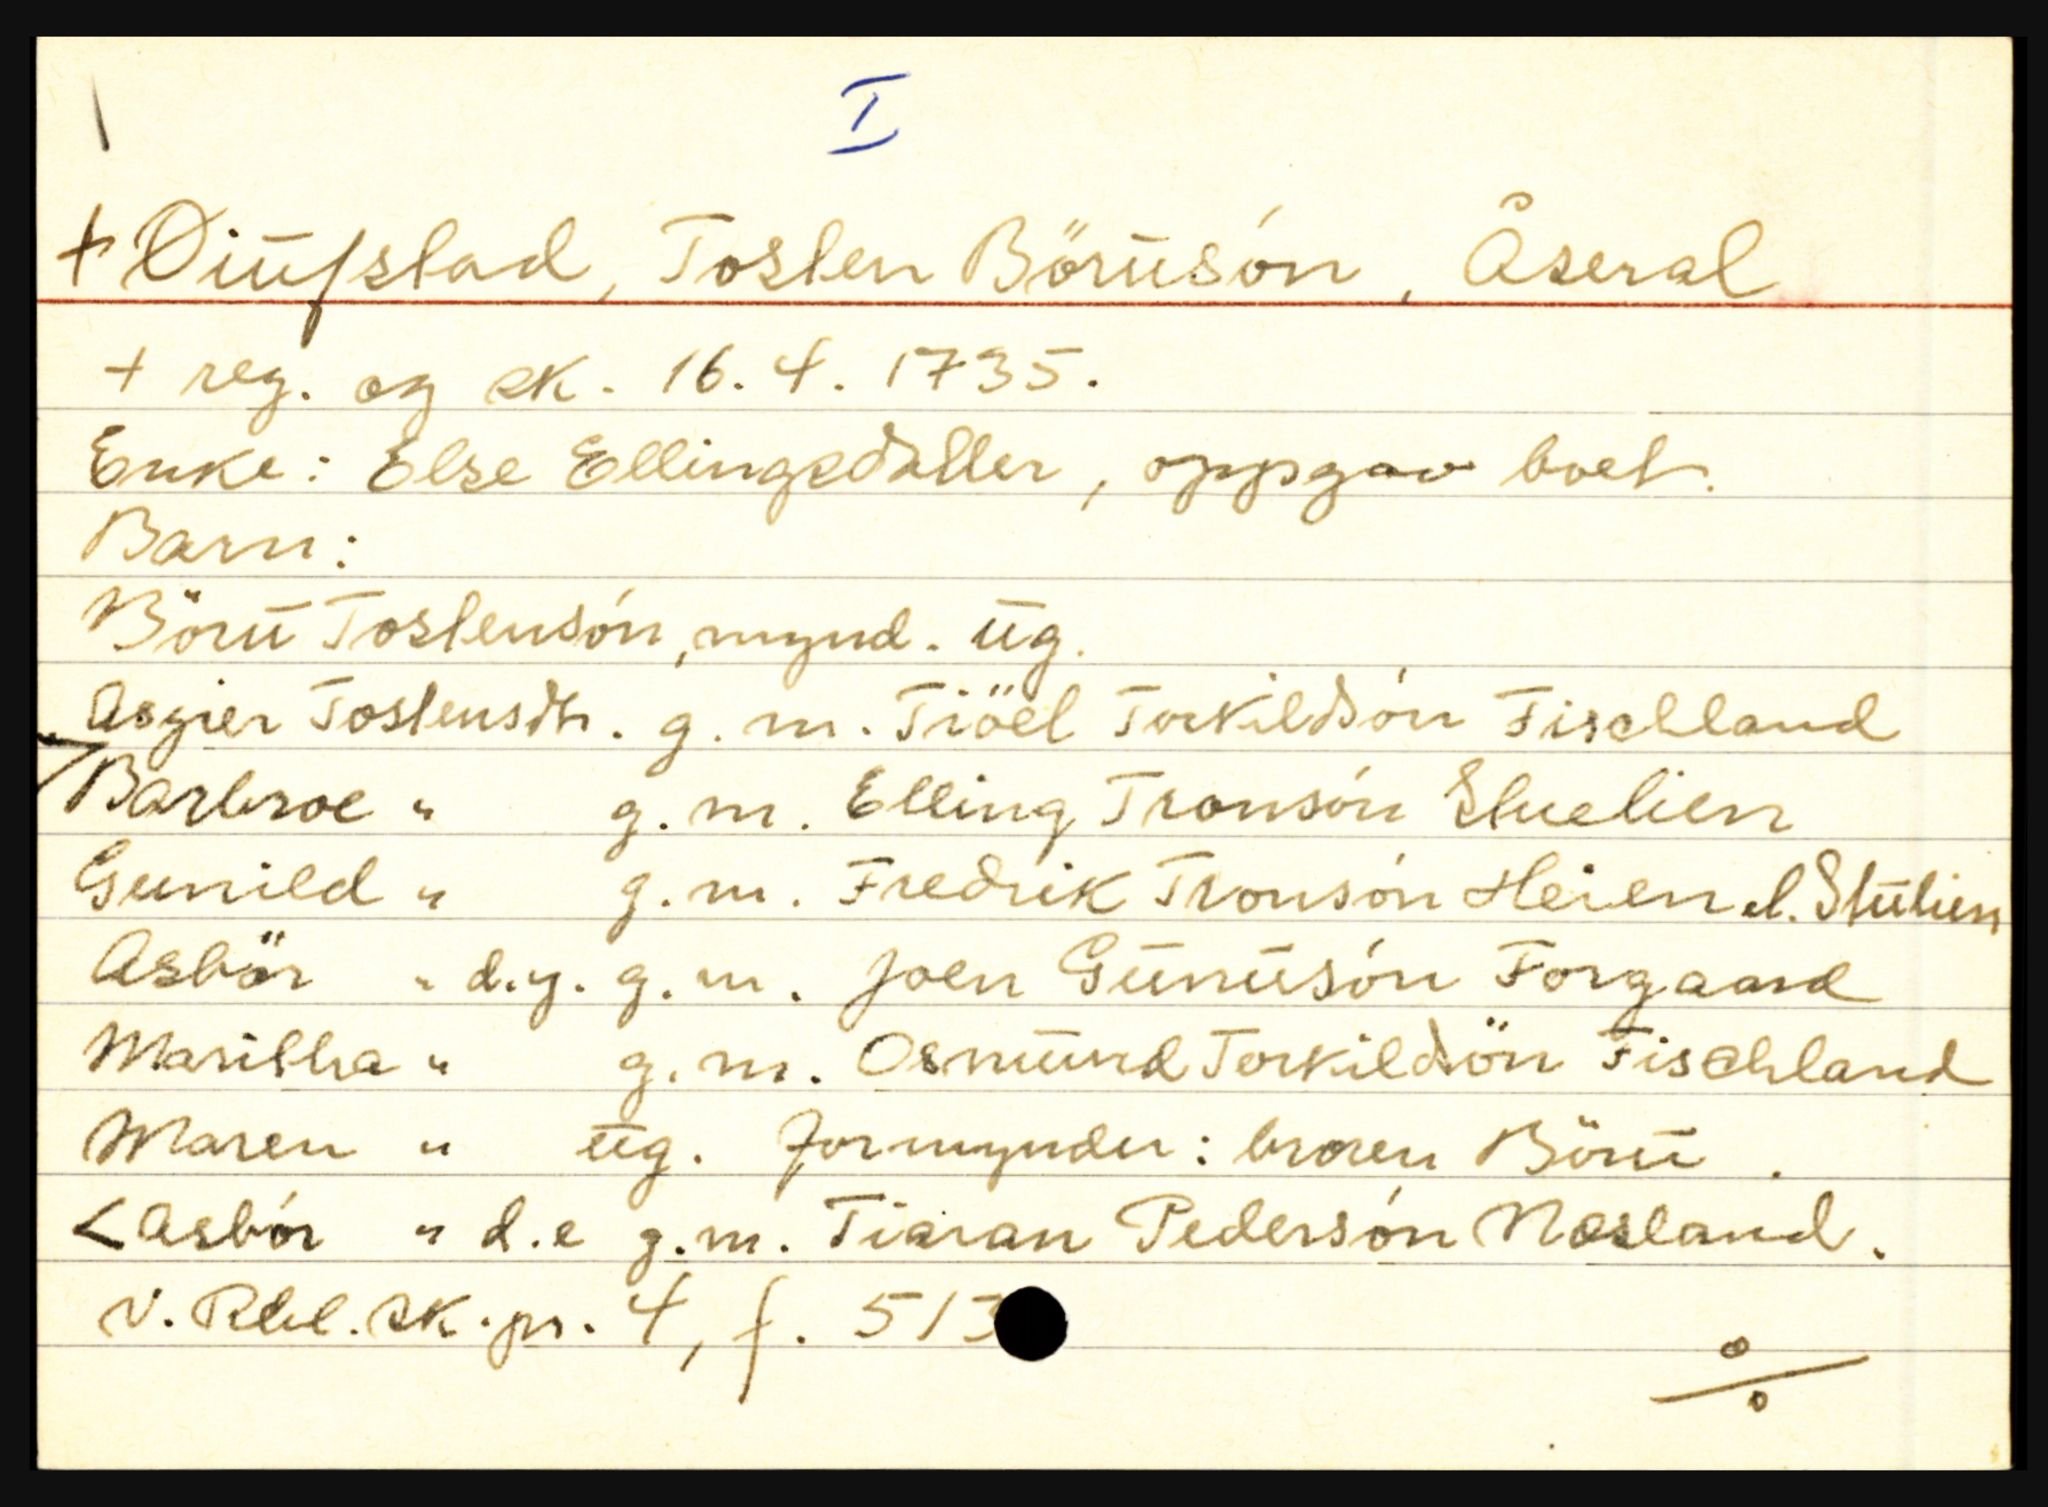 I
+ Diufstad, Tosten Börusón, Åseral
+ reg. og sk. 16. 4. 1735.
Enke: Else Ellingsdatter, oppgav boet.
Barn:
Böru Tostensón, mynd. ug.
Asgier Tostensdtr. g. m. Tiöel Torkildsón Fischland
Barbroe " g. m. Elling Tronsón Stuelien
Gunild " g. m. Fredrik Tronsón Heien el. Stulien
Asbör " d.y. g. m. Joen Gunusón Forgaard
Maritha " g. m. Osmund Torkildsön Fischland
Maren " ug. formynder: broren Böru.
< Asbór " d.e g.m. Tiaran Pedersón Næsland.
V. Rbl. sk. pr. 4, f. 513
%